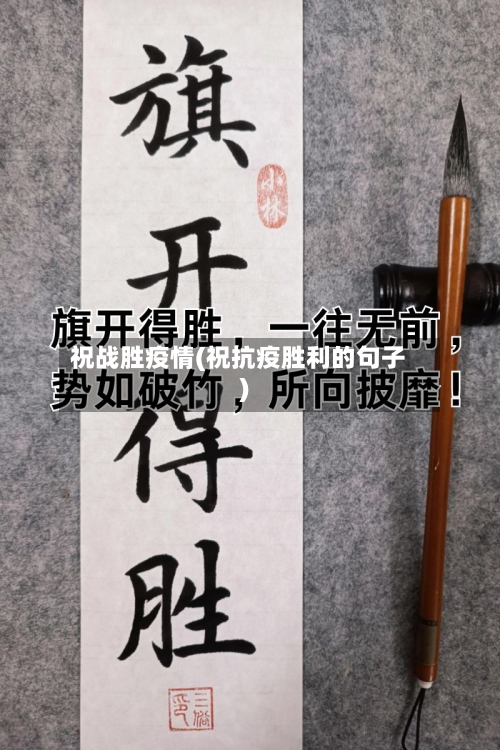 旗开得胜
小林
旗开得胜，一往无前，
祝战胜疫情(祝抗疫胜利的句子
)
势如破竹，所向披靡！